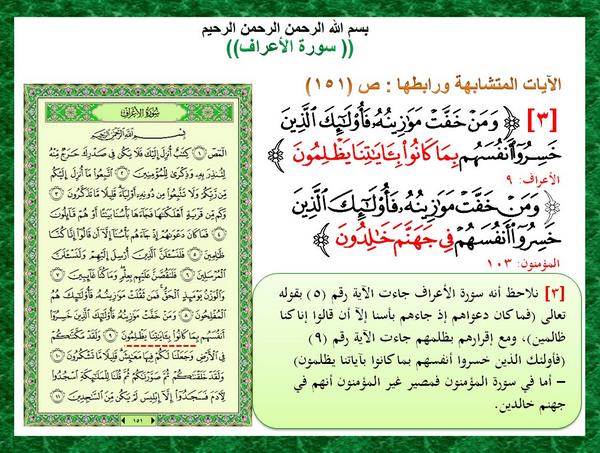 بسم الله الرحمن الرحمن الرحيم
(( سورة الأعراف))
الآيات المتشابهة ورابطها : ص (١٥١)
[٣] ﴿ وَمَنْ خَفَّتْ مَوَٰزِينُهُۥ فَأُو۟لَـٰٓئِكَ ٱلَّذِينَ
خَسِرُوٓا۟ أَنفُسَهُم بِمَا كَانُوا۟ بِـَٔايَـٰتِنَا يَظْلِمُونَ ﴾
الأعراف: ٩
﴿ وَمَنْ خَفَّتْ مَوَٰزِينُهُۥ فَأُو۟لَـٰٓئِكَ ٱلَّذِينَ
خَسِرُوٓا۟ أَنفُسَهُمْ فِى جَهَنَّمَ خَـٰلِدُونَ ﴾
المؤمنون: ١٠٣
[٣] نلاحظ أنه سورة الأعراف جاءت الآية رقم (٥) بقوله
تعالى (فما كان دعواهم إذ جاءهم بأسنا إلآ أن قالوا إنا كنا
ظالمين)، ومع إقرارهم بظلمهم جاءت الآية رقم (٩)
(فأولئك الذين خسروا أنفسهم بما كانوا بآياتنا يظلمون)
– أما في سورة المؤمنون فمصير غير المؤمنون أنهم في
جهنم خالدين.
سُورَةُ الأَعْرَافِ
بِسْمِ ٱللَّهِ ٱلرَّحْمَـٰنِ ٱلرَّحِيمِ
الٓمٓصٓ ١ كِتَـٰبٌ أُنزِلَ إِلَيْكَ فَلَا يَكُن فِى صَدْرِكَ حَرَجٌ مِّنْهُ
لِتُنذِرَ بِهِۦ وَذِكْرَىٰ لِلْمُؤْمِنِينَ ٢ ٱتَّبِعُوا۟ مَآ أُنزِلَ إِلَيْكُم
مِّن رَّبِّكُمْ وَلَا تَتَّبِعُوا۟ مِن دُونِهِۦٓ أَوْلِيَآءَ قَلِيلًا مَّا تَذَكَّرُونَ ٣
وَكَم مِّن قَرْيَةٍ أَهْلَكْنَـٰهَا فَجَآءَهَا بَأْسُنَا بَيَـٰتًا أَوْ هُمْ قَآئِلُونَ ٤
فَمَا كَانَ دَعْوَىٰهُمْ إِذْ جَآءَهُم بَأْسُنَآ إِلَّآ أَن قَالُوٓا۟ إِنَّا كُنَّا
ظَـٰلِمِينَ ٥ فَلَنَسْـَٔلَنَّ ٱلَّذِينَ أُرْسِلَ إِلَيْهِمْ وَلَنَسْـَٔلَنَّ
ٱلْمُرْسَلِينَ ٦ فَلَنَقُصَّنَّ عَلَيْهِم بِعِلْمٍ وَمَا كُنَّا غَآئِبِينَ ٧
وَٱلْوَزْنُ يَوْمَئِذٍ ٱلْحَقُّ فَمَن ثَقُلَتْ مَوَٰزِينُهُۥ فَأُو۟لَـٰٓئِكَ هُمُ
ٱلْمُفْلِحُونَ ٨ وَمَنْ خَفَّتْ مَوَٰزِينُهُۥ فَأُو۟لَـٰٓئِكَ ٱلَّذِينَ خَسِرُوٓا۟
أَنفُسَهُم بِمَا كَانُوا۟ بِـَٔايَـٰتِنَا يَظْلِمُونَ ٩ وَلَقَدْ مَكَّنَّـٰكُمْ
فِى ٱلْأَرْضِ وَجَعَلْنَا لَكُمْ فِيهَا مَعَـٰيِشَ قَلِيلًا مَّا تَشْكُرُونَ
١٠ وَلَقَدْ خَلَقْنَـٰكُمْ ثُمَّ صَوَّرْنَـٰكُمْ ثُمَّ قُلْنَا لِلْمَلَـٰٓئِكَةِ ٱسْجُدُوا۟
لِـَٔادَمَ فَسَجَدُوٓا۟ إِلَّآ إِبْلِيسَ لَمْ يَكُن مِّنَ ٱلسَّـٰجِدِينَ ١١
١٥١